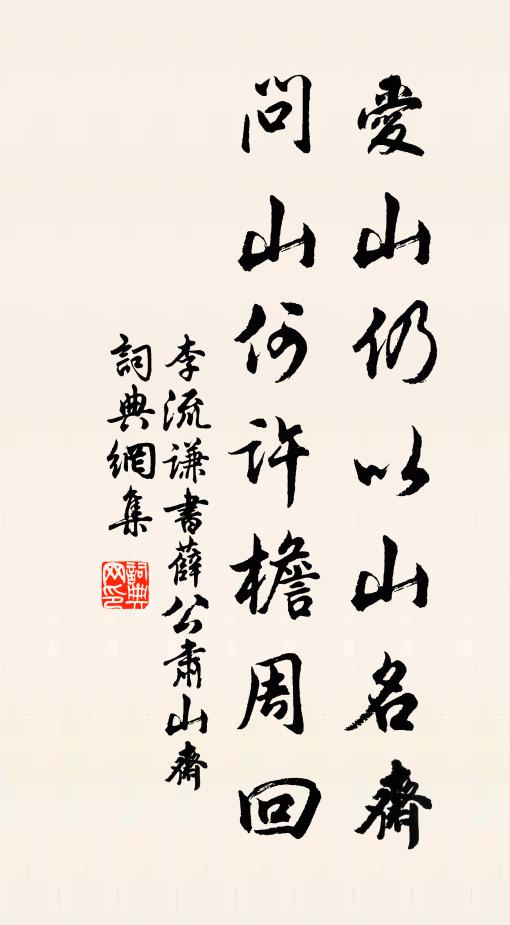 愛山仍以山名齋
問山何許檐周回
李流謙書薛公肅山齋
詞典網集
詞典
网印